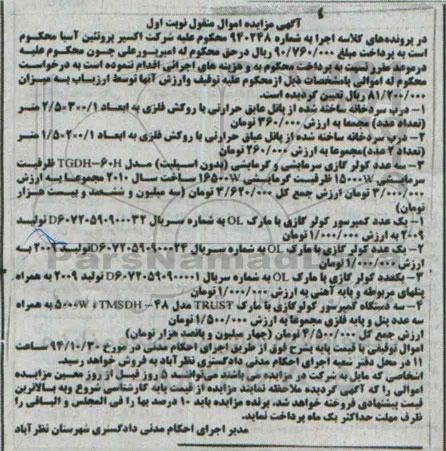 آگهی مزایده اموال منقول نوبت اول
در پرونده‌های کلاسه اجرا به شماره ۹۴۰۲۴۸ محکوم علیه شرکت اکسیر پروتئین آسیا محکوم
است به پرداخت مبلغ ۹۰/۷۶۰/۰۰۰ ریال درحق محکوم له امیرپورعلی چون محکوم علیه
درموعد مقرر نسبت به پرداخت محکوم به و هزینه های اجرائی اقدام ننموده است به درخواست
محکوم له اموالی بامشخصات ذیل ازمحکوم علیه توقیف وارزش آنها توسط ارزیاب به میزان
۸۱/۲۰۰/۰۰۰ ریال تعیین گردیده است.
۱- درب سردخانه ساخته شده از پانل عایق حرارتی با روکش فلزی به ابعاد ۲/۵۰*۳۰۰/۱ متر
(تعداد ۳عدد) مجمعا به ارزش ۳۶۰/۰۰۰ تومان
۲- درب سردخانه ساخته شده از پانل عایق حرارتی با روکش فلزی به ابعاد ۲۰۰/۱*۱/۵۰ متر
(تعداد ۲ عدد)مجموعا به ارزش ۲۶۰/۰۰۰ تومان
۳- سه عدد کولر گازی سرمایشی و گرمایشی (بدون اسپلیت) مدل TGDH-۶۰H ظرفیت
سرمایشی ۱۵۰۰۰W ظرفیت گرمایشی ۱۶۵۰۰W ساخت سال ۲۰۱۰ مجموعا به ارزش
۳/۰۰۰/۰۰۰ تومان ارزش جمع کل ۳/۶۲۰/۰۰۰ تومان (سه میلیون و ششصد و بیست هزار
تومان)
۱- یک عدد کمپرسور کولر گازی با مارک OL به شماره سریال D۶۰۷۲۰۵۹۰۹۰۰۰۳۲ تولید
۲۰۰۹ به ارزش ۱/۰۰۰/۰۰۰ تومان
۲- یک عدد کولر گازی با مارک OL به شماره سریال D۶۰۷۲۰۵۹۰۹۰۰۰۲۳ تولید ۲۰۰۹ به
ارزش ۱/۰۰۰/۰۰۰ تومان
۳- یکعدد کولر گازی با مارک OL به شماره سریال D۶۰۷۲۰۵۹۰۹۰۰۰۱ تولید ۲۰۰۹ به همراه
پنلهای مربوطه و پایه آهنی به ارزش ۱/۰۰۰/۰۰۰ تومان
۲- سه دستگاه کمپرسور کولرگازی با مارک TRUST مدل TMSDH-۴۸ ۵۰۰۰W به همراه
سه عدد پنل و پایه فلزی مجموعا به ارزش ۱/۵۰۰/۰۰۰ تومان
ارزش جمع کل ۴/۵۰۰/۰۰۰ تومان (چهار میلیون و پانصد هزار تومان)
اموال توقیفی با قیمت پایه بشرح فوق از طریق اجرای احکام مدنی در مورخ ۹۴/۱۰/۳۰ ساعت
۱۱ در محل دفتر شعبه اجرای احکام مدنی دادگستری نظرآباد به فروش خواهد رسید.
اشخاصی که مایل به شرکت در مزایده می باشند می‌توانند ۵ روز قبل از روز معین مزایده
اموالی را که آگهی گردیده ملاحظه نمایند مزایده از قیمت پایه کارشناسی شروع وبه بالاترین
قیمت پیشنهادی فروخته خواهد شد. برنده مزایده باید ۱۰ درصد بها را فی المجلس و الباقی را
ظرف مهلت حداکثر یک ماه پرداخت نماید.
مدیر اجرای احکام مدنی دادگستری شهرستان نظر آباد